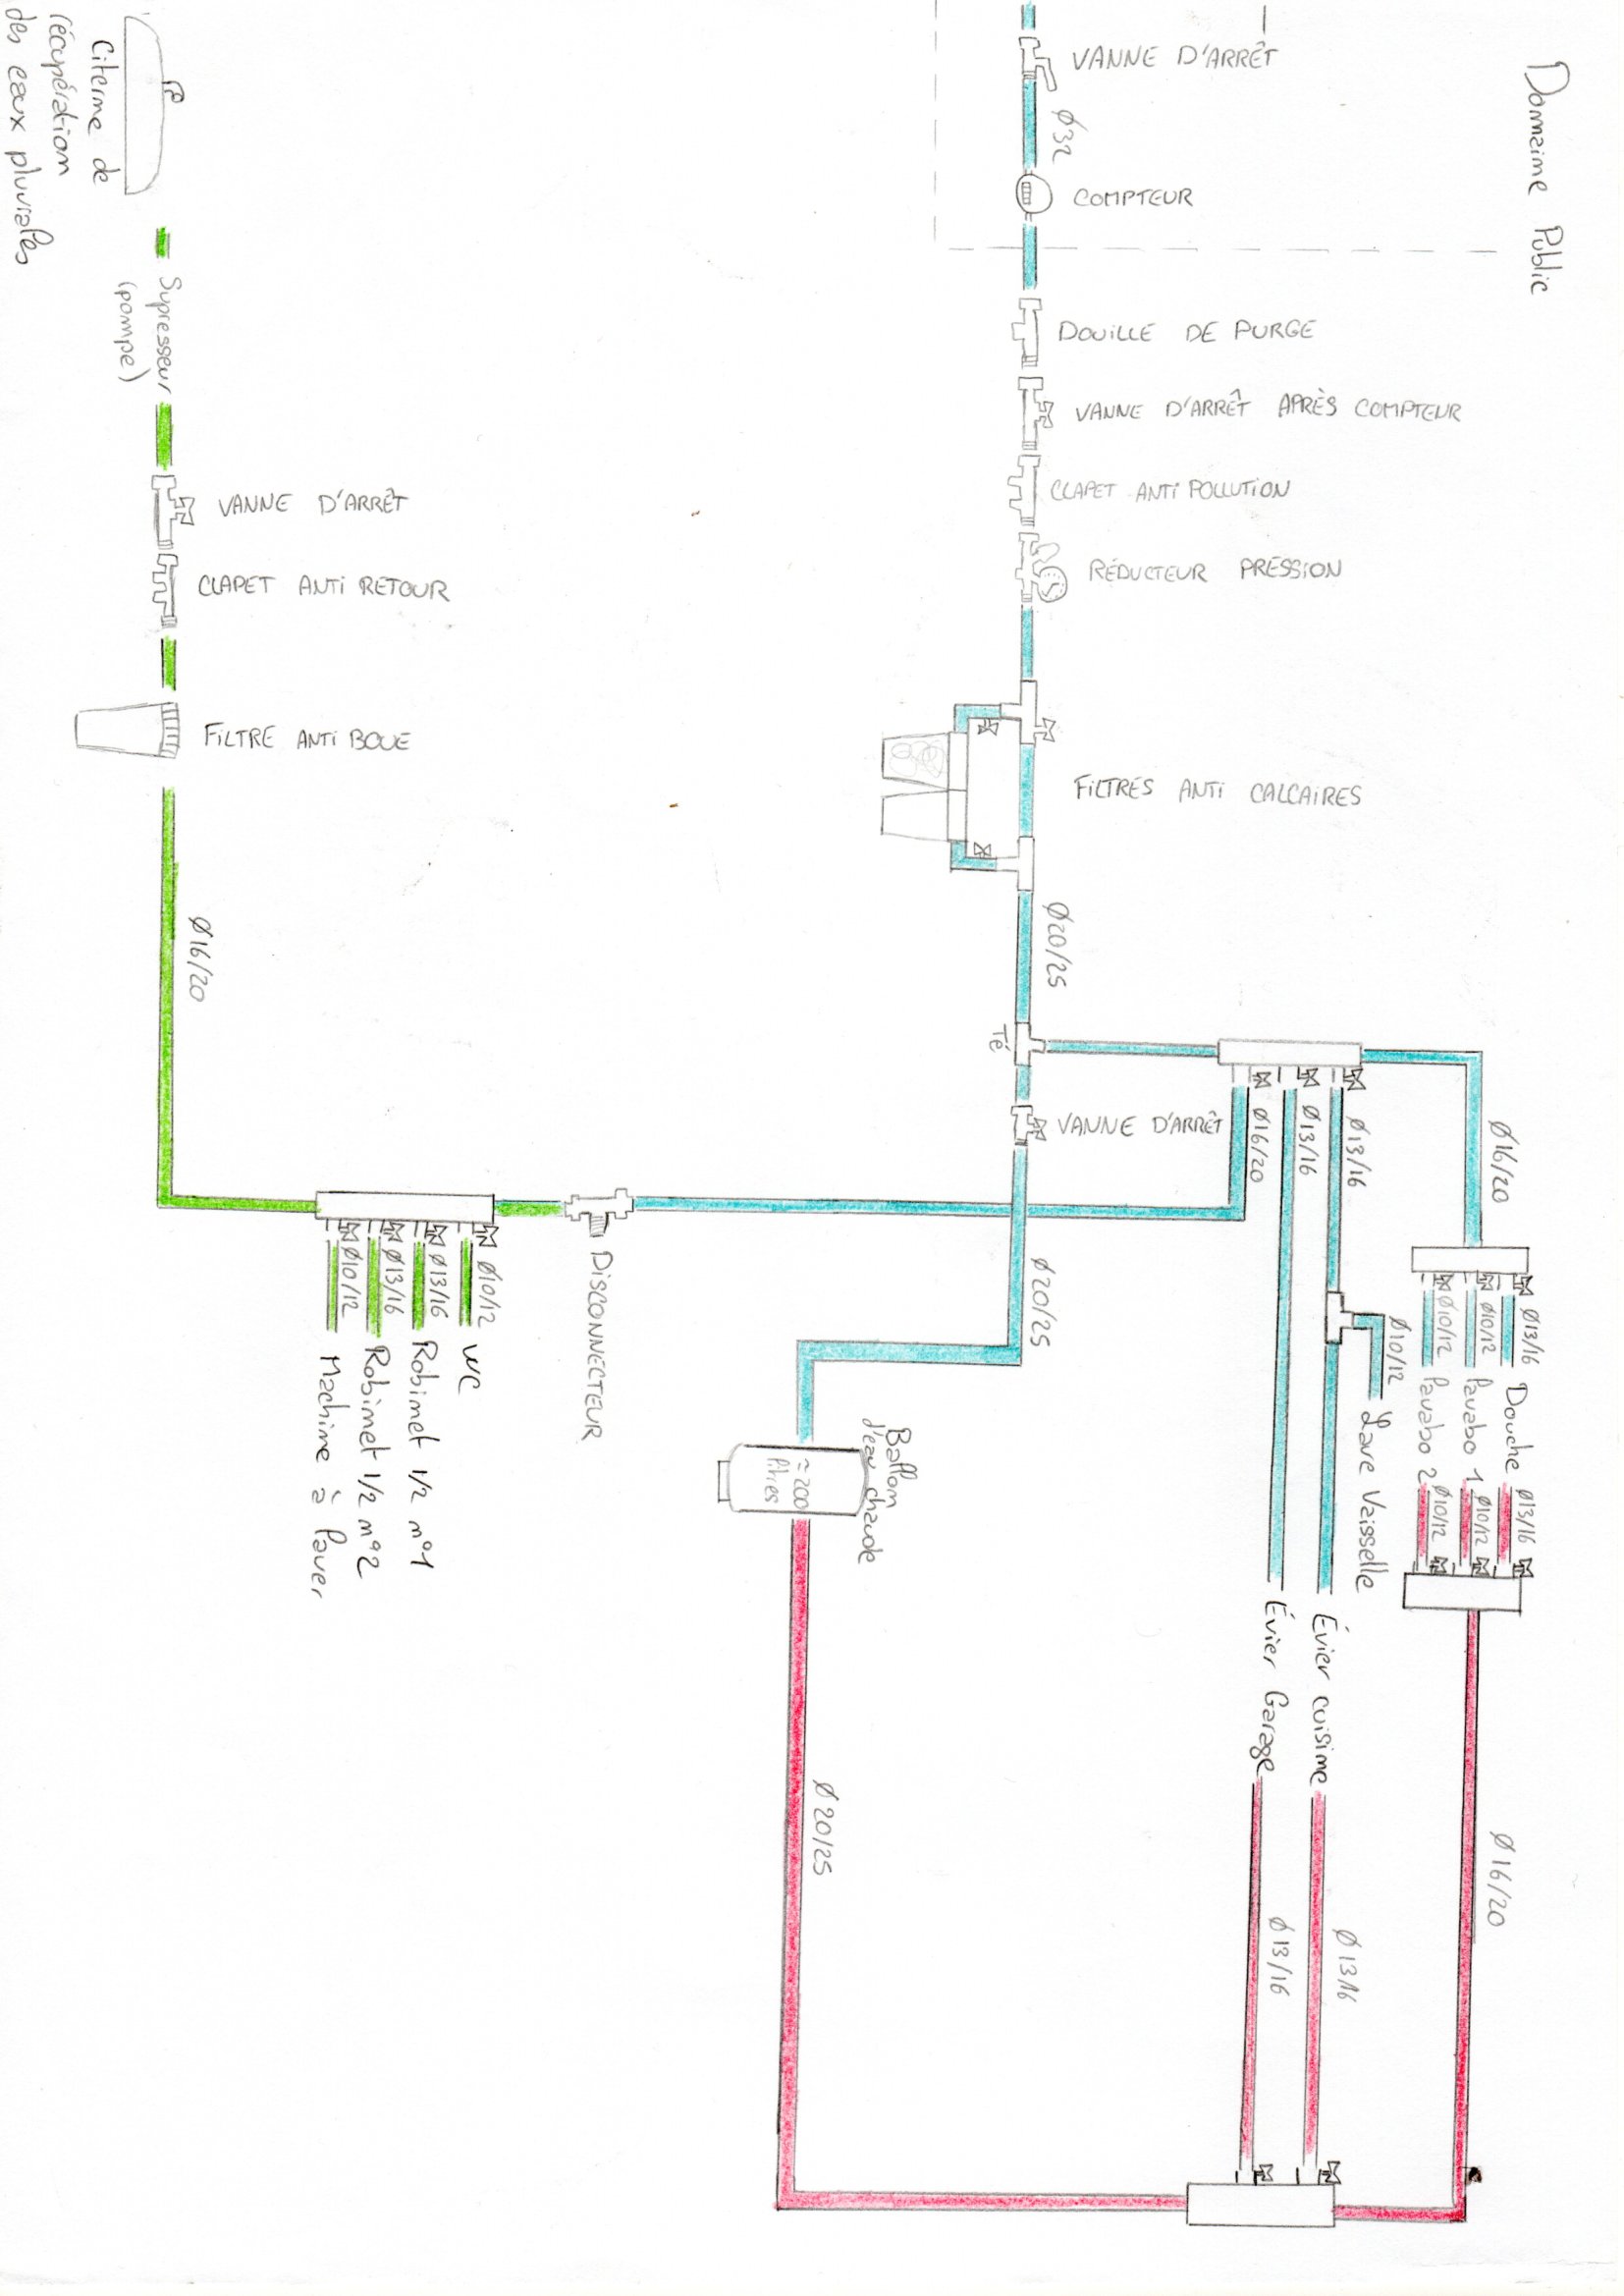 Domaine Public
VANNE D'ARRÊT
Ø32
COMPTEUR
DOUILLE DE PURGE
VANNE D'ARRÊT APRÈS COMPTEUR
CLAPET ANTI POLLUTION
RÉDUCTEUR PRESSION
FILTRES ANTI CALCAIRES
Ø20/25
Té
VANNE D'ARRÊT
Ø16/20
Ø13/16
Ø13/16
Ø16/20
Ø10/12
Ø10/12
Ø13/16
Lavabo 2
Lavabo 1
Douche
Ø10/12
Ø10/12
Ø13/16
Ø10/12
Lave Vaisselle
Évier Garage
Évier cuisine
Ø13/16
Ø13/16
Ø16/20
Ø20/25
Ballon
d'eau chaude
≈200
litres
Ø20/25
Citerne de
récupération
des eaux pluviales
Supresseur
(pompe)
VANNE D'ARRÊT
CLAPET ANTI RETOUR
FILTRE ANTI BOUE
Ø16/20
DISCONNECTEUR
Ø10/12
Ø13/16
Ø13/16
Ø10/12
WC
Robinet 1/2 n°1
Robinet 1/2 n°2
Machine à laver